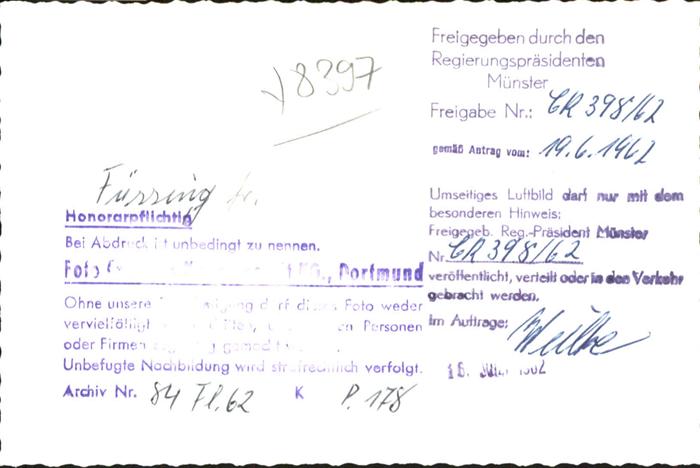 V 8397
Freigegeben durch den
Regierungspräsidenten
Münster
Freigabe Nr.: CR 398/62
gemäß Antrag vom: 19.6.1962
Umseitiges Luftbild darf nur mit dem
besonderen Hinweis:
Freigegeb. Reg.-Präsident Münster
Nr. CR 398/62
veröffentlicht, verteilt oder in den Verkehr
gebracht werden.
Im Auftrage:
1962
Honorarpflichtig
Bei Abdruck ist unbedingt zu nennen.
Foto KG., Dortmund
Ohne unsere darf dieses Foto weder
vervielfältigt Personen
oder Firmen
Unbefugte Nachbildung wird strafrechtlich verfolgt.
Archiv Nr. 84 Fl. 62 K P. 178